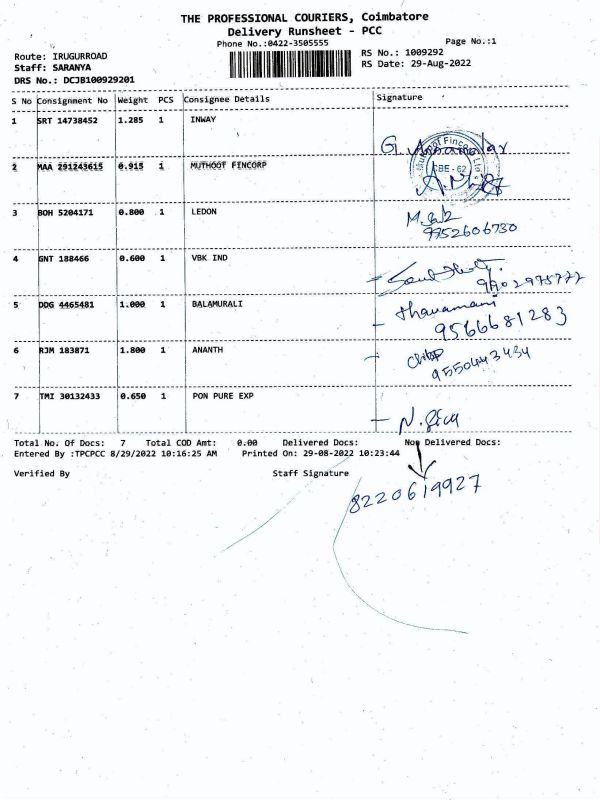 THE PROFESSIONAL COURIERS, Coimbatore
Delivery Runsheet - PCC
Phone No.:0422-3505555
Page No.:1
Route: IRUGURROAD
RS No.: 1009292
Staff: SARANYA
RS Date: 29-Aug-2022
DRS No.: DCJB100929201
S No Consignment No Weight PCS Consignee Details Signature
1 SRT 14738452 1.285 1 INWAY
2 MAA 291243615 0.915 1 MUTHOOT FINCORP
CBE - 62
3 BOH 5204171 0.800 1 LEDON
9952606730
4 GNT 188466 0.600 1 VBK IND
9902975772
5 DDG 4465481 1.000 1 BALAMURALI
thavamani
9566681283
6 RJM 183871 1.800 1 ANANTH
9550443434
7 TMI 30132433 0.650 1 PON PURE EXP
Total No. Of Docs: 7 Total COD Amt: 0.00 Delivered Docs: Non Delivered Docs:
Entered By :TPCPCC 8/29/2022 10:16:25 AM Printed On: 29-08-2022 10:23:44
Verified By Staff Signature
8220619927